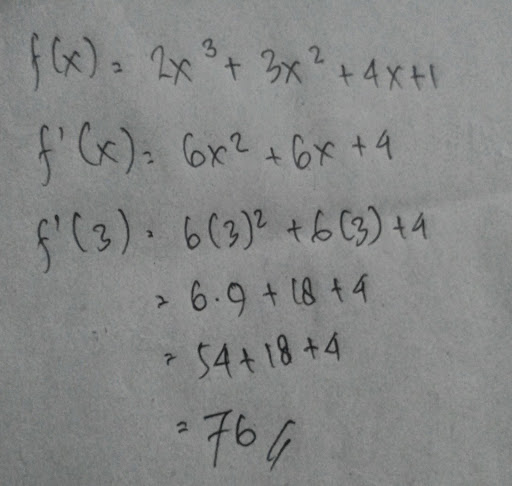 f(x) = 2x³ + 3x² + 4x+1
f'(x) = 6x² + 6x + 4
f'(3) = 6(3)² + 6(3) + 4
= 6.9 + 18 + 4
= 54 + 18 + 4
= 76 //